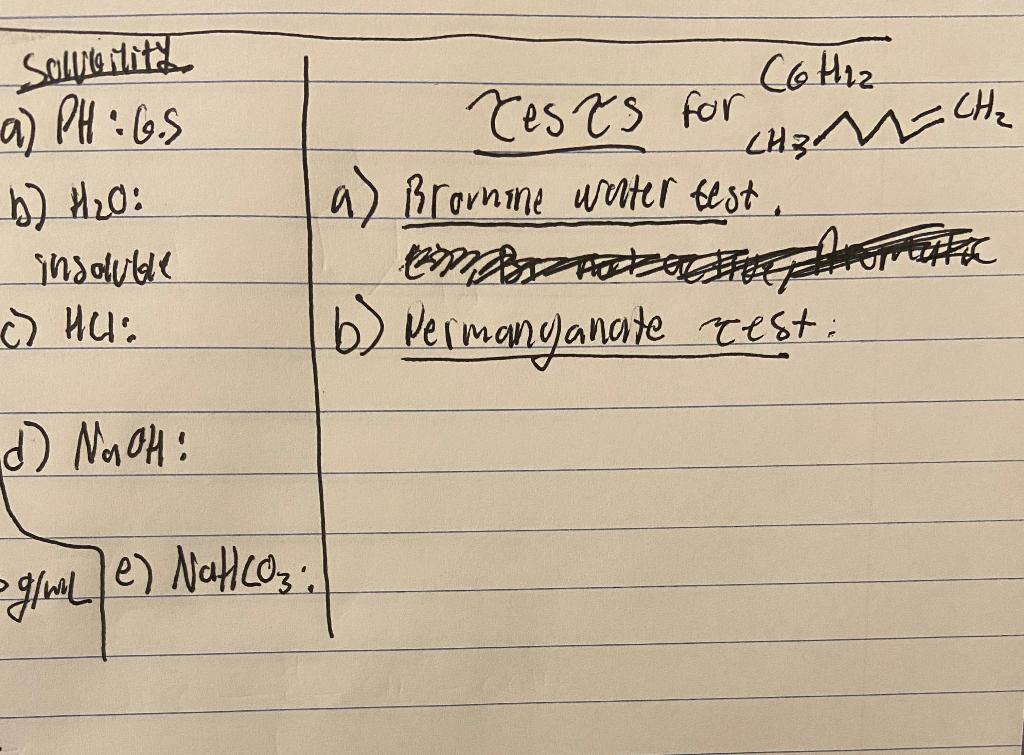 Solubility
a) PH: 6.5
b) H₂O:
insoluble
c) HCl:
d) NaOH:
g/mL
e) NaHCO₃:
Tests for C6H12
CH3 CH₂
a) Bromine water test.
b) Permanganate test: